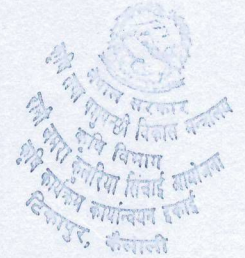 नेपाल सरकार
कृषि तथा पशुपन्छी विकास मन्त्रालय
कृषि विभाग
रानी जमरा कुलरिया सिंचाई आयोजना
कृषि कार्यक्रम कार्यान्वयन इकाई
टिकापुर, कैलाली